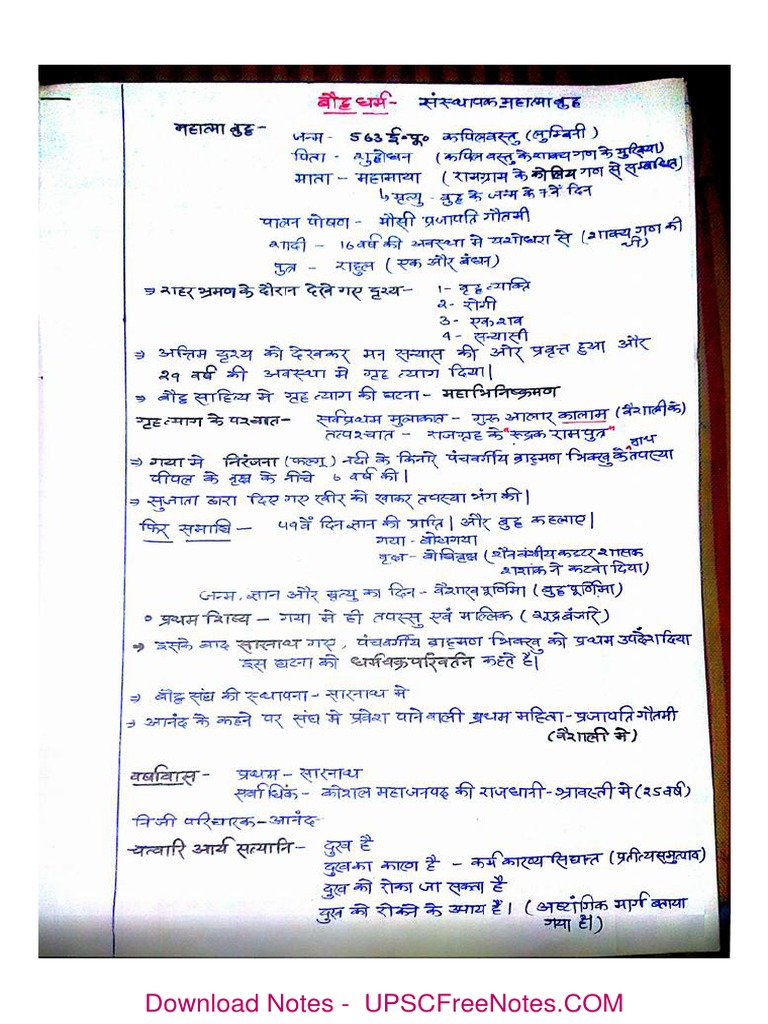 बौद्ध धर्म - संस्थापक महात्मा बुद्ध
महात्मा बुद्ध -
जन्म - 563 ई०पू० कपिलवस्तु (लुम्बिनी)
पिता - शुद्धोधन (कपिलवस्तु के शाक्य गण के मुखिया)
माता - महामाया (रामग्राम के कोलिय गण से सम्बन्धित)
↳ मृत्यु - बुद्ध के जन्म के 7वें दिन
पालन पोषण - मौसी प्रजापति गौतमी
शादी - 16 वर्ष की अवस्था मे यशोधरा से (शाक्य गण की थी)
पुत्र - राहुल (एक और बंधन)
⇒ शहर भ्रमण के दौरान देखे गए दृश्य - 1- वृद्ध व्यक्ति
2- रोगी
3- एक शव
4- सन्यासी
⇒ अन्तिम दृश्य को देखकर मन सन्यास की ओर प्रवृत्त हुआ और
29 वर्ष की अवस्था मे गृह त्याग दिया|
⇒ बौद्ध साहित्य मे गृह त्याग की घटना - महाभिनिष्क्रमण
गृहत्याग के पश्चात - सर्वप्रथम मुलाकात - गुरु आलार कालाम (वैशाली के)
तत्पश्चात - राजगृह के "रुद्रक रामपुत्र"
⇒ गया मे निरंजना (फल्गु) नदी के किनारे पंचवर्गीय ब्राह्मण भिक्खु के साथ तपस्या
पीपल के वृक्ष के नीचे 6 वर्ष की|
⇒ सुजाता द्वारा दिए गए खीर को खाकर तपस्या भंग की|
फिर समाधि - 49वें दिन ज्ञान की प्राप्ति| और बुद्ध कहलाए|
गया - बोधगया
वृक्ष - बोधिवृक्ष (शैव वंशीय कट्टर शासक
शशांक ने कटवा दिया)
जन्म, ज्ञान और मृत्यु का दिन - वैशाख पूर्णिमा (बुद्ध पूर्णिमा)
० प्रथम शिष्य - गया मे ही तपस्सु एवं मल्लिक (शूद्र बंजारे)
⇒ इसके बाद सारनाथ गए, पंचवर्गीय ब्राह्मण भिक्खु को प्रथम उपदेश दिया
इस घटना को धर्मचक्र परिवर्तन कहते है|
⇒ बौद्ध संघ की स्थापना - सारनाथ मे
⇒ आनंद के कहने पर संघ मे प्रवेश पाने वाली प्रथम महिला - प्रजापति गौतमी
(वैशाली मे)
वर्षावास - प्रथम - सारनाथ
सर्वाधिक - कोशल महाजनपद की राजधानी - श्रावस्ती मे (25 वर्ष)
निजी परिचारक - आनंद
चत्वारि आर्य सत्यानि - दुख है
दुख का कारण है - कर्म कारण सिद्धान्त (प्रतीत्यसमुत्पाद)
दुख को रोका जा सकता है
दुख को रोकने के उपाय हैं। (अष्टांगिक मार्ग बताया
गया है।)
Download Notes - UPSCFreeNotes.COM